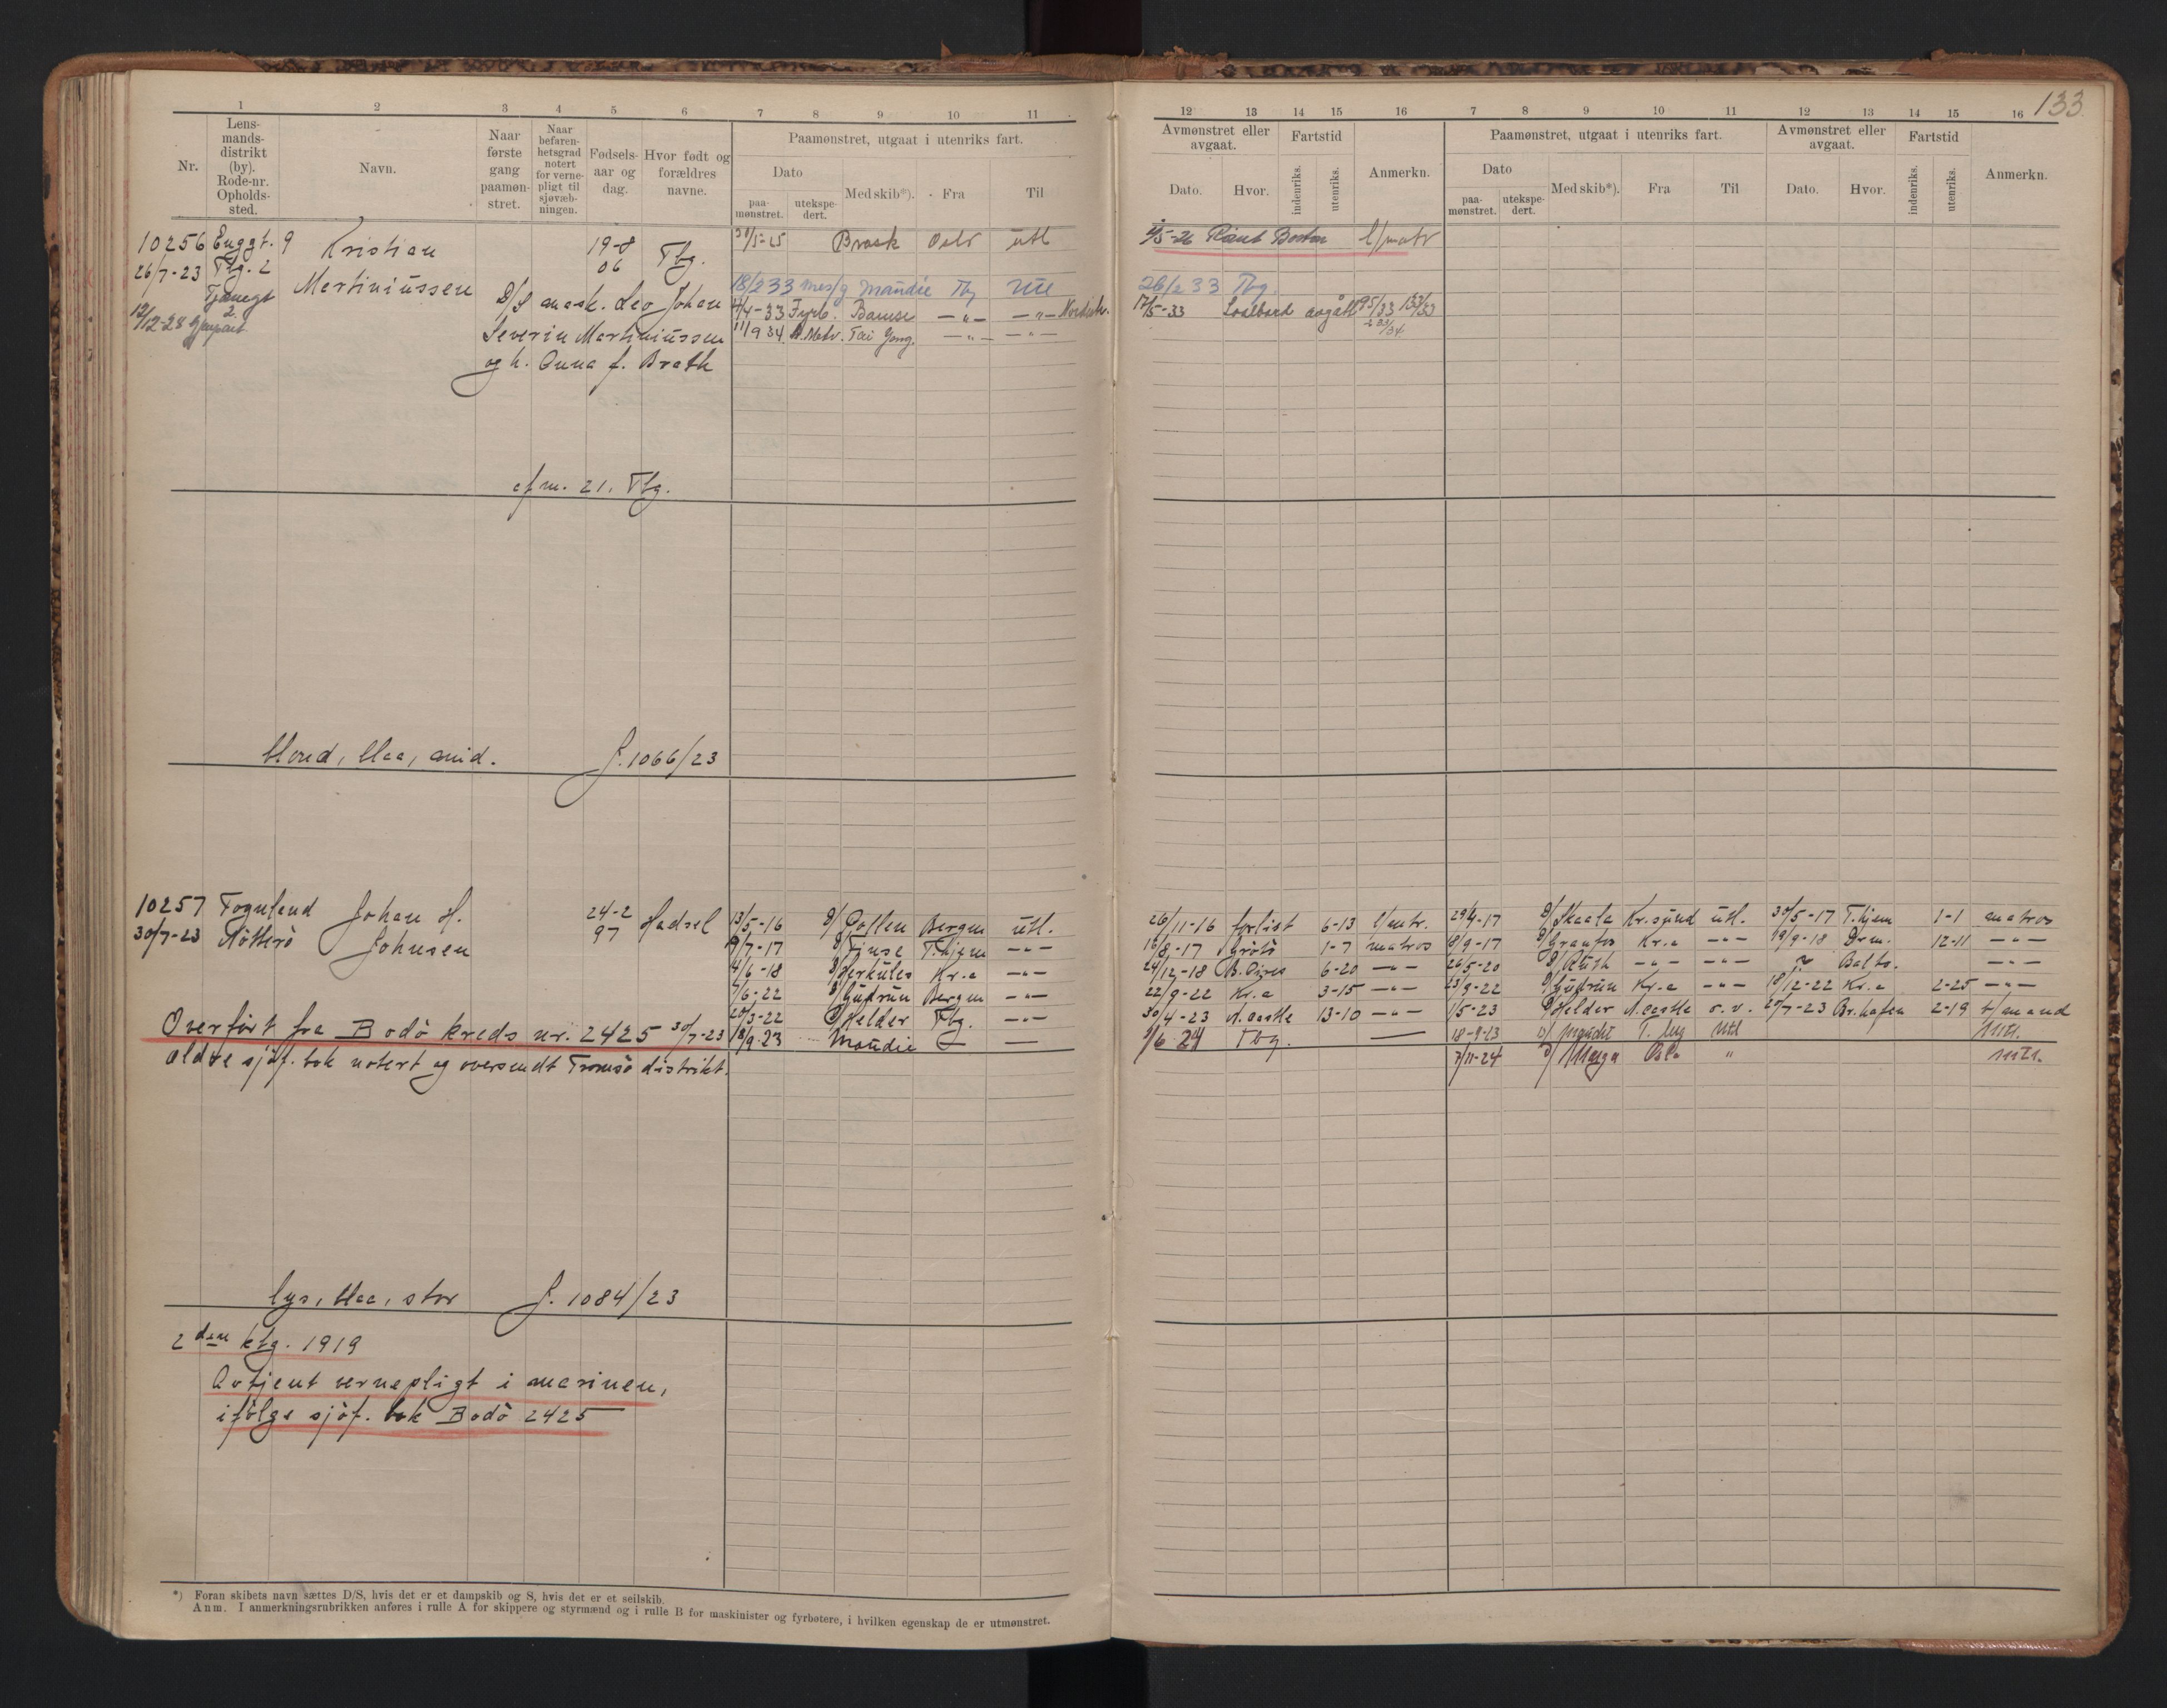 133
1 2 3 4 5 6 7 8 9 10 11
Nr.
Lens-
mands-
distrikt
(by).
Rode-nr.
Opholds-
sted.
Navn.
Naar
første
gang
paamøn-
stret.
Naar
befaren-
hetsgrad
notert
for verne-
pligt til
sjøvæb-
ningen.
Fødsels-
aar og
dag.
Hvor født og
forældres
navne.
Paamønstret, utgaat i utenriks fart.
Dato
paa-
mønstret.
utekspe-
dert.
Med skib*).
Fra
Til
10256 Enggt. 9 Kristian 19-8 06 Tbg.
26/7-23 Tbg. 2 Martiniussen
12/12-28
D/S mask. Leo Johan
Severin Martiniussen
og h. Anna f. Brath
31/5-25 Brask Oslo utl
18/2 33 mes/g Maudie Tbg Utl
4/4-33 Fyrb. Bamse —„— —„— Nordishv.
11/9 34 M.Matr. Tai Yang. —„— —„—
efm. 21. Tbg.
blond, blaa, mid. J. 1066/23
10257 Fognland Johan H. 24-2 97 Hadsel
30/7-23 Nötterö Johnsen
13/5-16 D/ Pollen Bergen utl.
/7-17 D/ Finse T.hjem —„—
4/6-18 D/ Herkules Kr.a —„—
/6-22 D/ Gudrun Bergen —„—
20/3-22 D/ Helder Tbg. —„—
18/9-23 Maudie — —
Overfört fra Bodö kreds nr. 2425 30/7-23
Eldre sjöf. bok notert og oversendt Tromsö distrikt.
lys, blaa, stor J. 1084/23
2den ktg. 1919
Avtjent vernepligt i marinen,
ifölge sjöf. bok Bodö 2425
*) Foran skibets navn sættes D/S, hvis det er et dampskib og S, hvis det er et seilskib.
Anm. I anmerkningsrubrikken anføres i rulle A for skippere og styrmænd og i rulle B for maskinister og fyrbøtere, i hvilken egenskap de er utmønstret.
12 13 14 15 16 7 8 9 10 11 12 13 14 15 16
Avmønstret eller
avgaat.
Dato.
Hvor.
Fartstid
indenriks.
utenriks.
Anmerkn.
Paamønstret, utgaat i utenriks fart.
Dato
paa-
mønstret.
utekspe-
dert.
Med skib*).
Fra
Til
Avmønstret eller
avgaat.
Dato.
Hvor.
Fartstid
indenriks.
utenriks.
Anmerkn.
/5-26 Rømt Boston l/matr
26/2 33 Tbg.
17/5-33 avgått 95/33 133/33
26/11-16 forlist 6-13 l/mtr. 29/4-17 D/ Skaala Kr.sund utl. 30/5-17 T.hjem 1-1 matros
16/8-17 Grötö 1-7 matros 8/9-17 D/ Granfos Kr.a —„— 19/9-18 Drm. 12-11 —„—
24/12-18 B. Aires 6-20 —„— 26/5-20 D/ Ruth —„— —„— Balto. —„—
22/9-22 Kr.a 3-15 —„— 23/9-22 D/ Gudrun Kr.a —„— 18/12-22 Kr.a 2-25 —„—
30/4-23 N.castle 13-10 —„— 1/5-23 D/ Helder N.castle o.v. 20/7-23 Br.hafen 2-19 t/mand
/6 24 Tbg. — 18-9-23 D/ Maudie T.bug Utl Mtr.
7/11-24 D/ Oslo „ mtr.